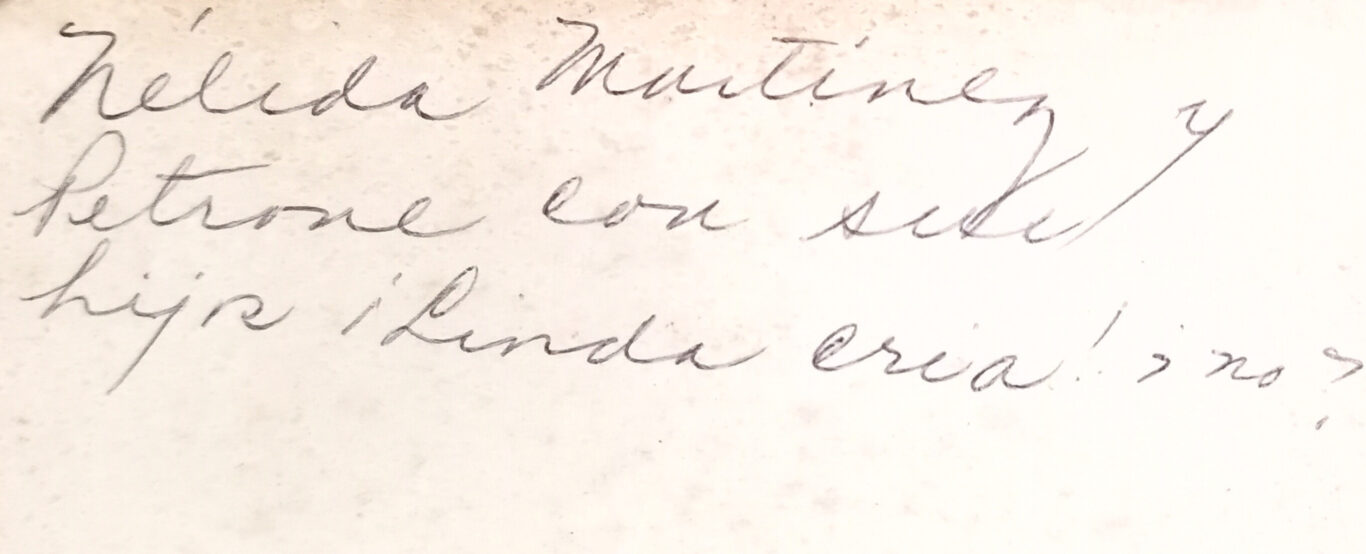 Nélida Martínez y
Petrone con seis
hijos ¡Linda cria! ¿no?